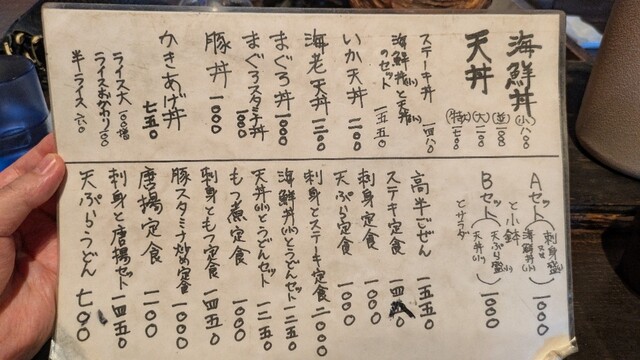 海鮮丼
天丼
(小)八〇〇
(並)一〇〇〇
(大)一三〇〇
(特大)一七〇〇
ステーキ丼 一四八〇
海鮮丼(小)と天丼(小)のセット 一五五〇
いか天丼 一二〇〇
海老天丼 一三〇〇
まぐろ丼 一〇〇〇
まぐろスタミナ丼 一〇〇〇
豚丼 一〇〇〇
かきあげ丼 七五〇
ライス大 一〇〇増
ライスおかわり 一〇〇
半ライス 六〇
Aセット
刺身盛(小)
又は
海鮮丼(小)
と小鉢
一〇〇〇
Bセット
天ぷら盛(小)
天丼(小)
とサラダ
一〇〇〇
高半ごぜん 一五五〇
ステーキ定食
刺身定食 一〇〇〇
天ぷら定食 一〇〇〇
刺身とステーキ定食 二〇〇〇
海鮮丼(小)とうどんセット 一二五〇
天丼(小)とうどんセット 一二五〇
もつ煮定食 一〇〇〇
刺身ともつ定食 一四五〇
豚スタミナ炒め定食 一〇〇〇
唐揚定食 一一〇〇
刺身と唐揚セット 一四五〇
天ぷらうどん 七〇〇